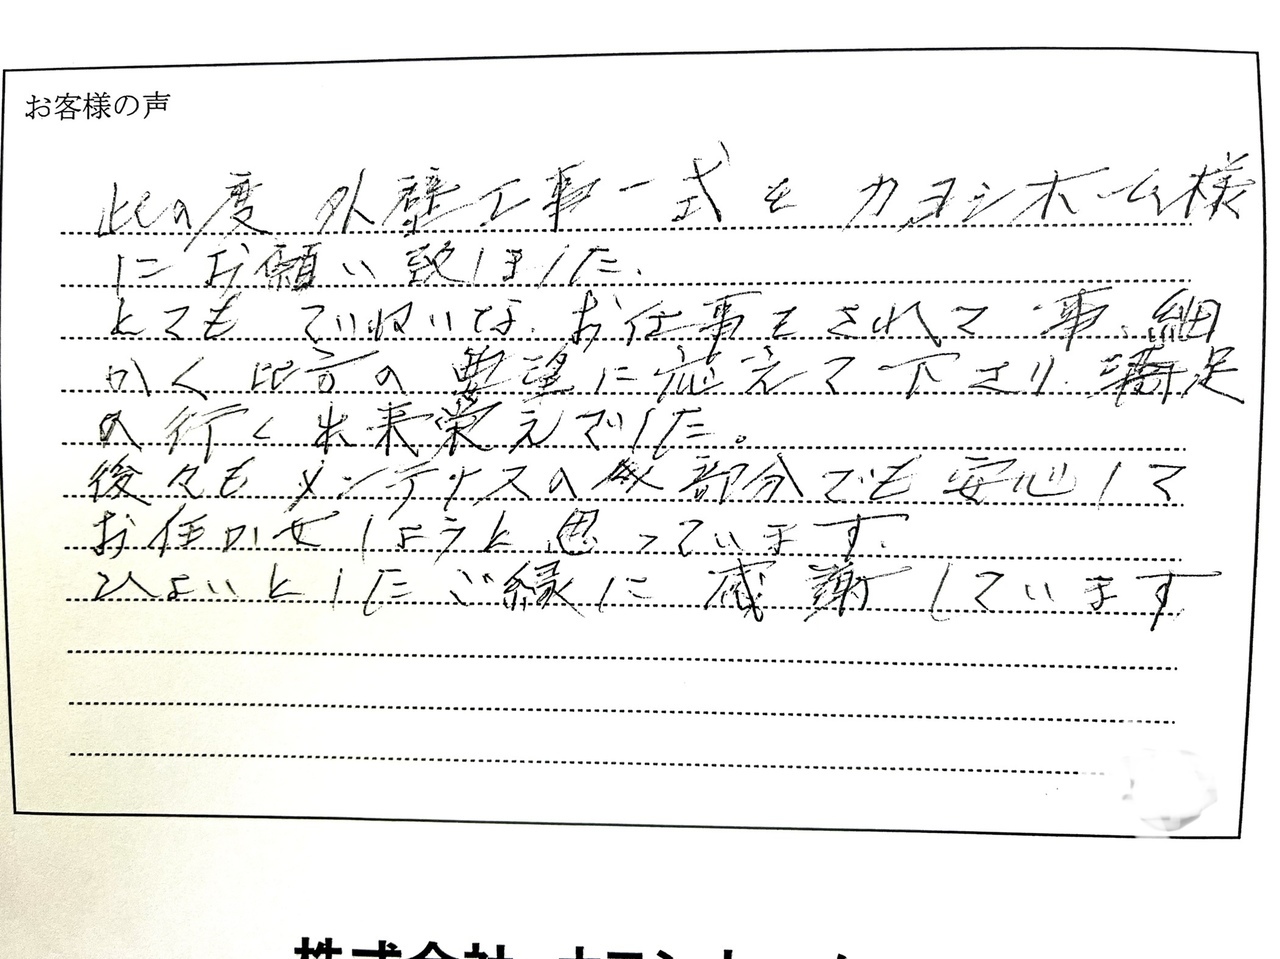 お客様の声
此の度 外壁工事一式を カヨシホーム様
にお願い致しました.
とても ていねいな、お仕事をされて 事、細
かく 此方の 要望に応えて下さり、満足
の行く出来栄えでした。
後々も メンテナスの 部分でも 安心して
お任かせしようと 思っています.
ひょいとした ご縁に 感謝しています
株式会社 カヨシホーム